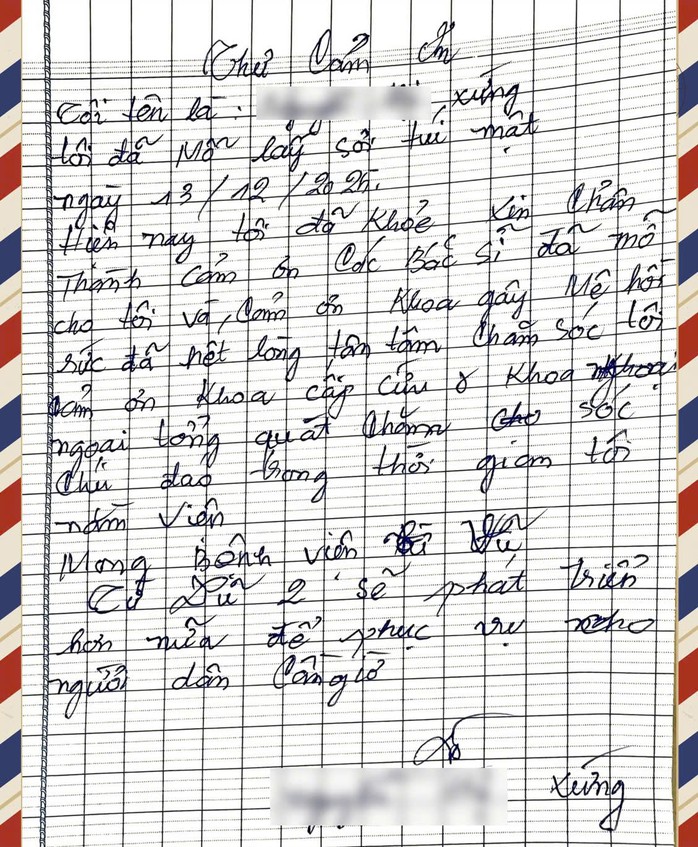 Thư Cảm Ơn
Tôi tên là: xứng
tôi đã Mỗ lấy sỏi túi mật
ngày 13/12/2025.
Hiện nay tôi đã khỏe xin Chân
Thành Cảm ơn Các Bác sĩ đã mỗ
cho tôi và, Cảm ơn Khoa gây Mê hồi
sức đã hết lòng tận tâm Chăm sóc tôi
cảm ơn khoa cấp cứu & khoa
ngoại tổng quát Chăm sóc
Chu đáo trong thời gian tôi
nằm Viện
Mong Bệnh viện
Từ Dũ 2 sẽ phát triển
hơn nữa để phục vụ cho
người dân Cần giờ
xứng